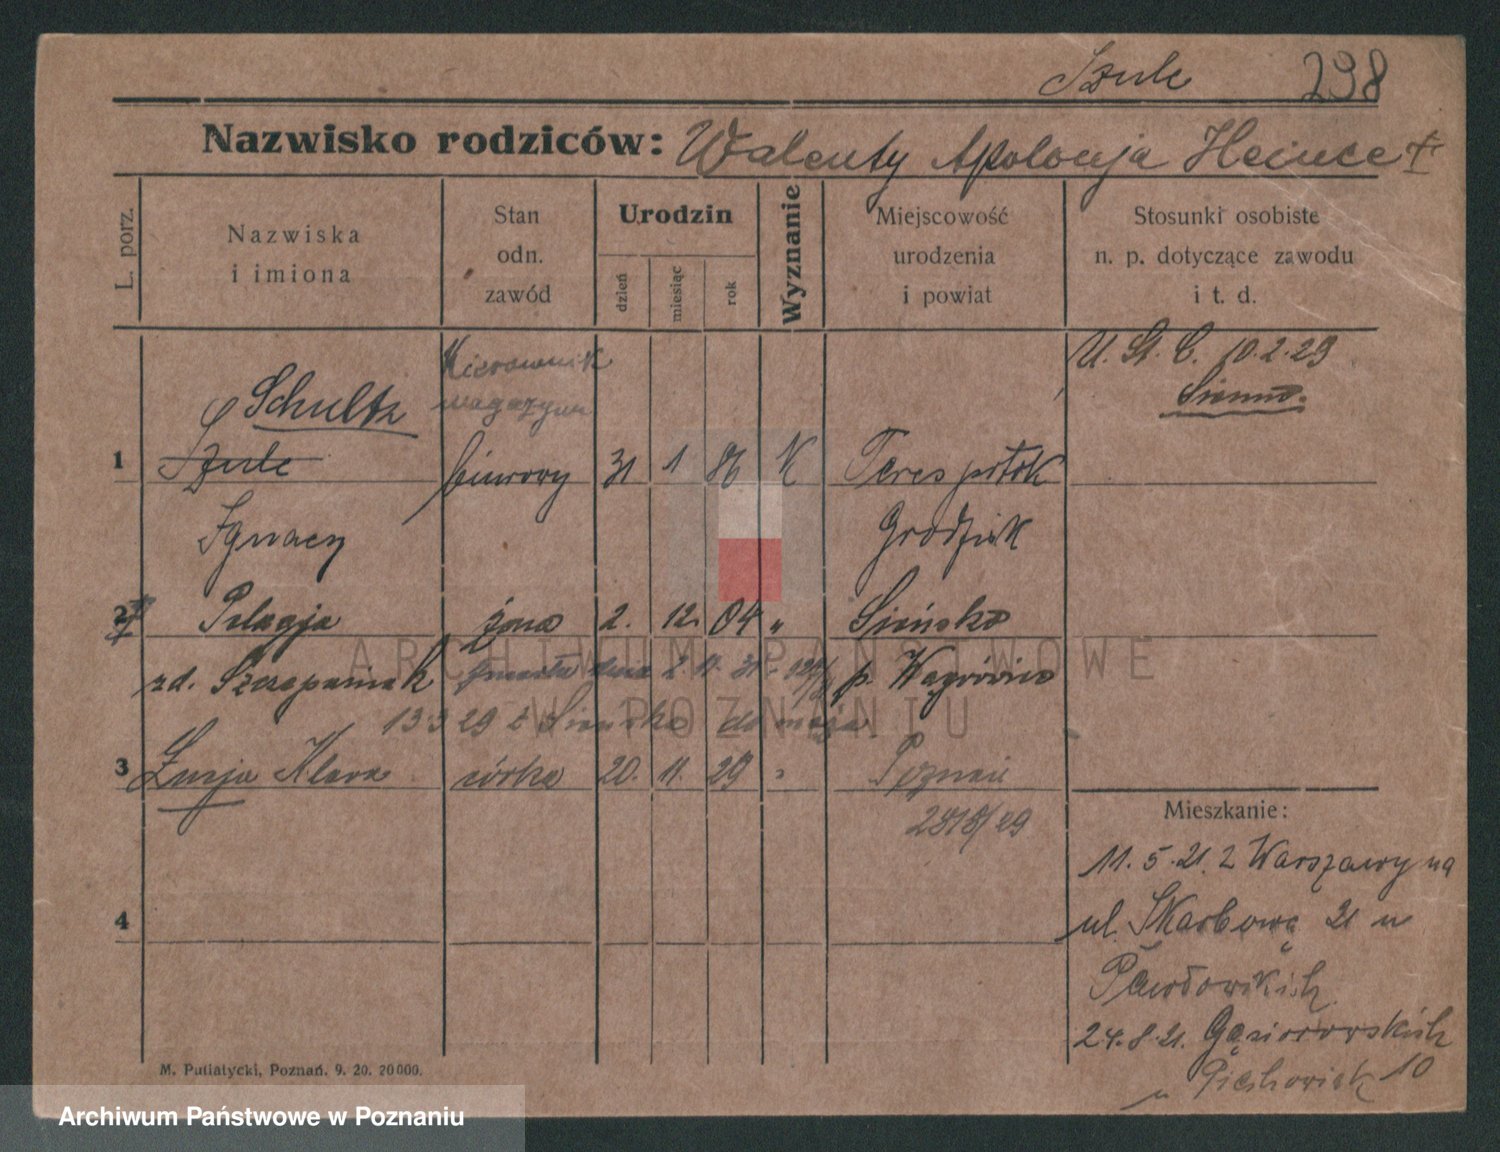 Szulc 298
Nazwisko rodziców: Walenty Apolonja Heince
L. porz.
Nazwiska
i imiona
Stan
odn.
zawód
Urodzin
dzień
miesiąc
rok
Wyznanie
Miejscowość
urodzenia
i powiat
Stosunki osobiste
n. p. dotyczące zawodu
i t. d.
Kierownik
magazynu
U. St. C. 10.2.29
Sienno.
Schultz
1 Szulc biurowy 31 1 86 K Terespotok
Ignacy Grodzisk
2 Pelagja żona 2. 12. 04 „ Sieńsko
zd. Szczepaniak p. Wągrówiec
13 3 29 z Sieńska do męża
3 Łucja Klara córka 20. 11. 29 „ Poznań
2818/29
Mieszkanie:
11. 5. 21. z Warszawy na
ul. Skarbową 21 u
Pawłowskich
24. 8. 21. Gąsiorowskich 10
u
4
M. Putiatycki, Poznań. 9. 20. 20000.
ARCHIWUM PAŃSTWOWE
W POZNANIU
Archiwum Państwowe w Poznaniu